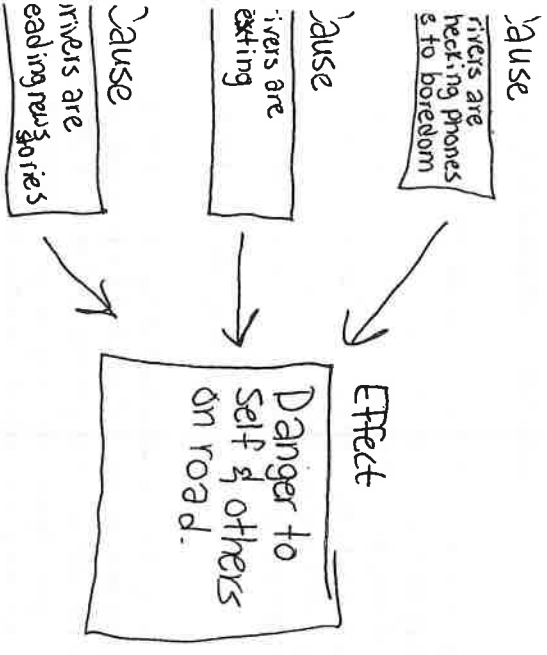 Cause
rivers are
hecking phones
s to boredom
Cause
ivers are
exting
Cause
rivers are
eading news
stories
Effect
Danger to
self & others
on road.